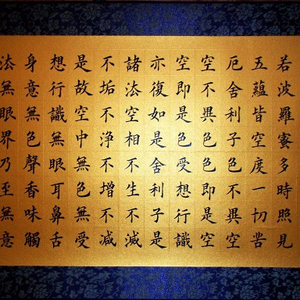 若波羅蜜多時照見
五蘊皆空度一切苦
厄舍利子色不異空
空不異色色即是空
空即是色受想行識
亦復如是舍利子是
諸法空相不生不滅
不垢不淨不增不減
是故空中無色無受
想行識無眼耳鼻舌
身意無色聲香味觸
法無眼界乃至無意